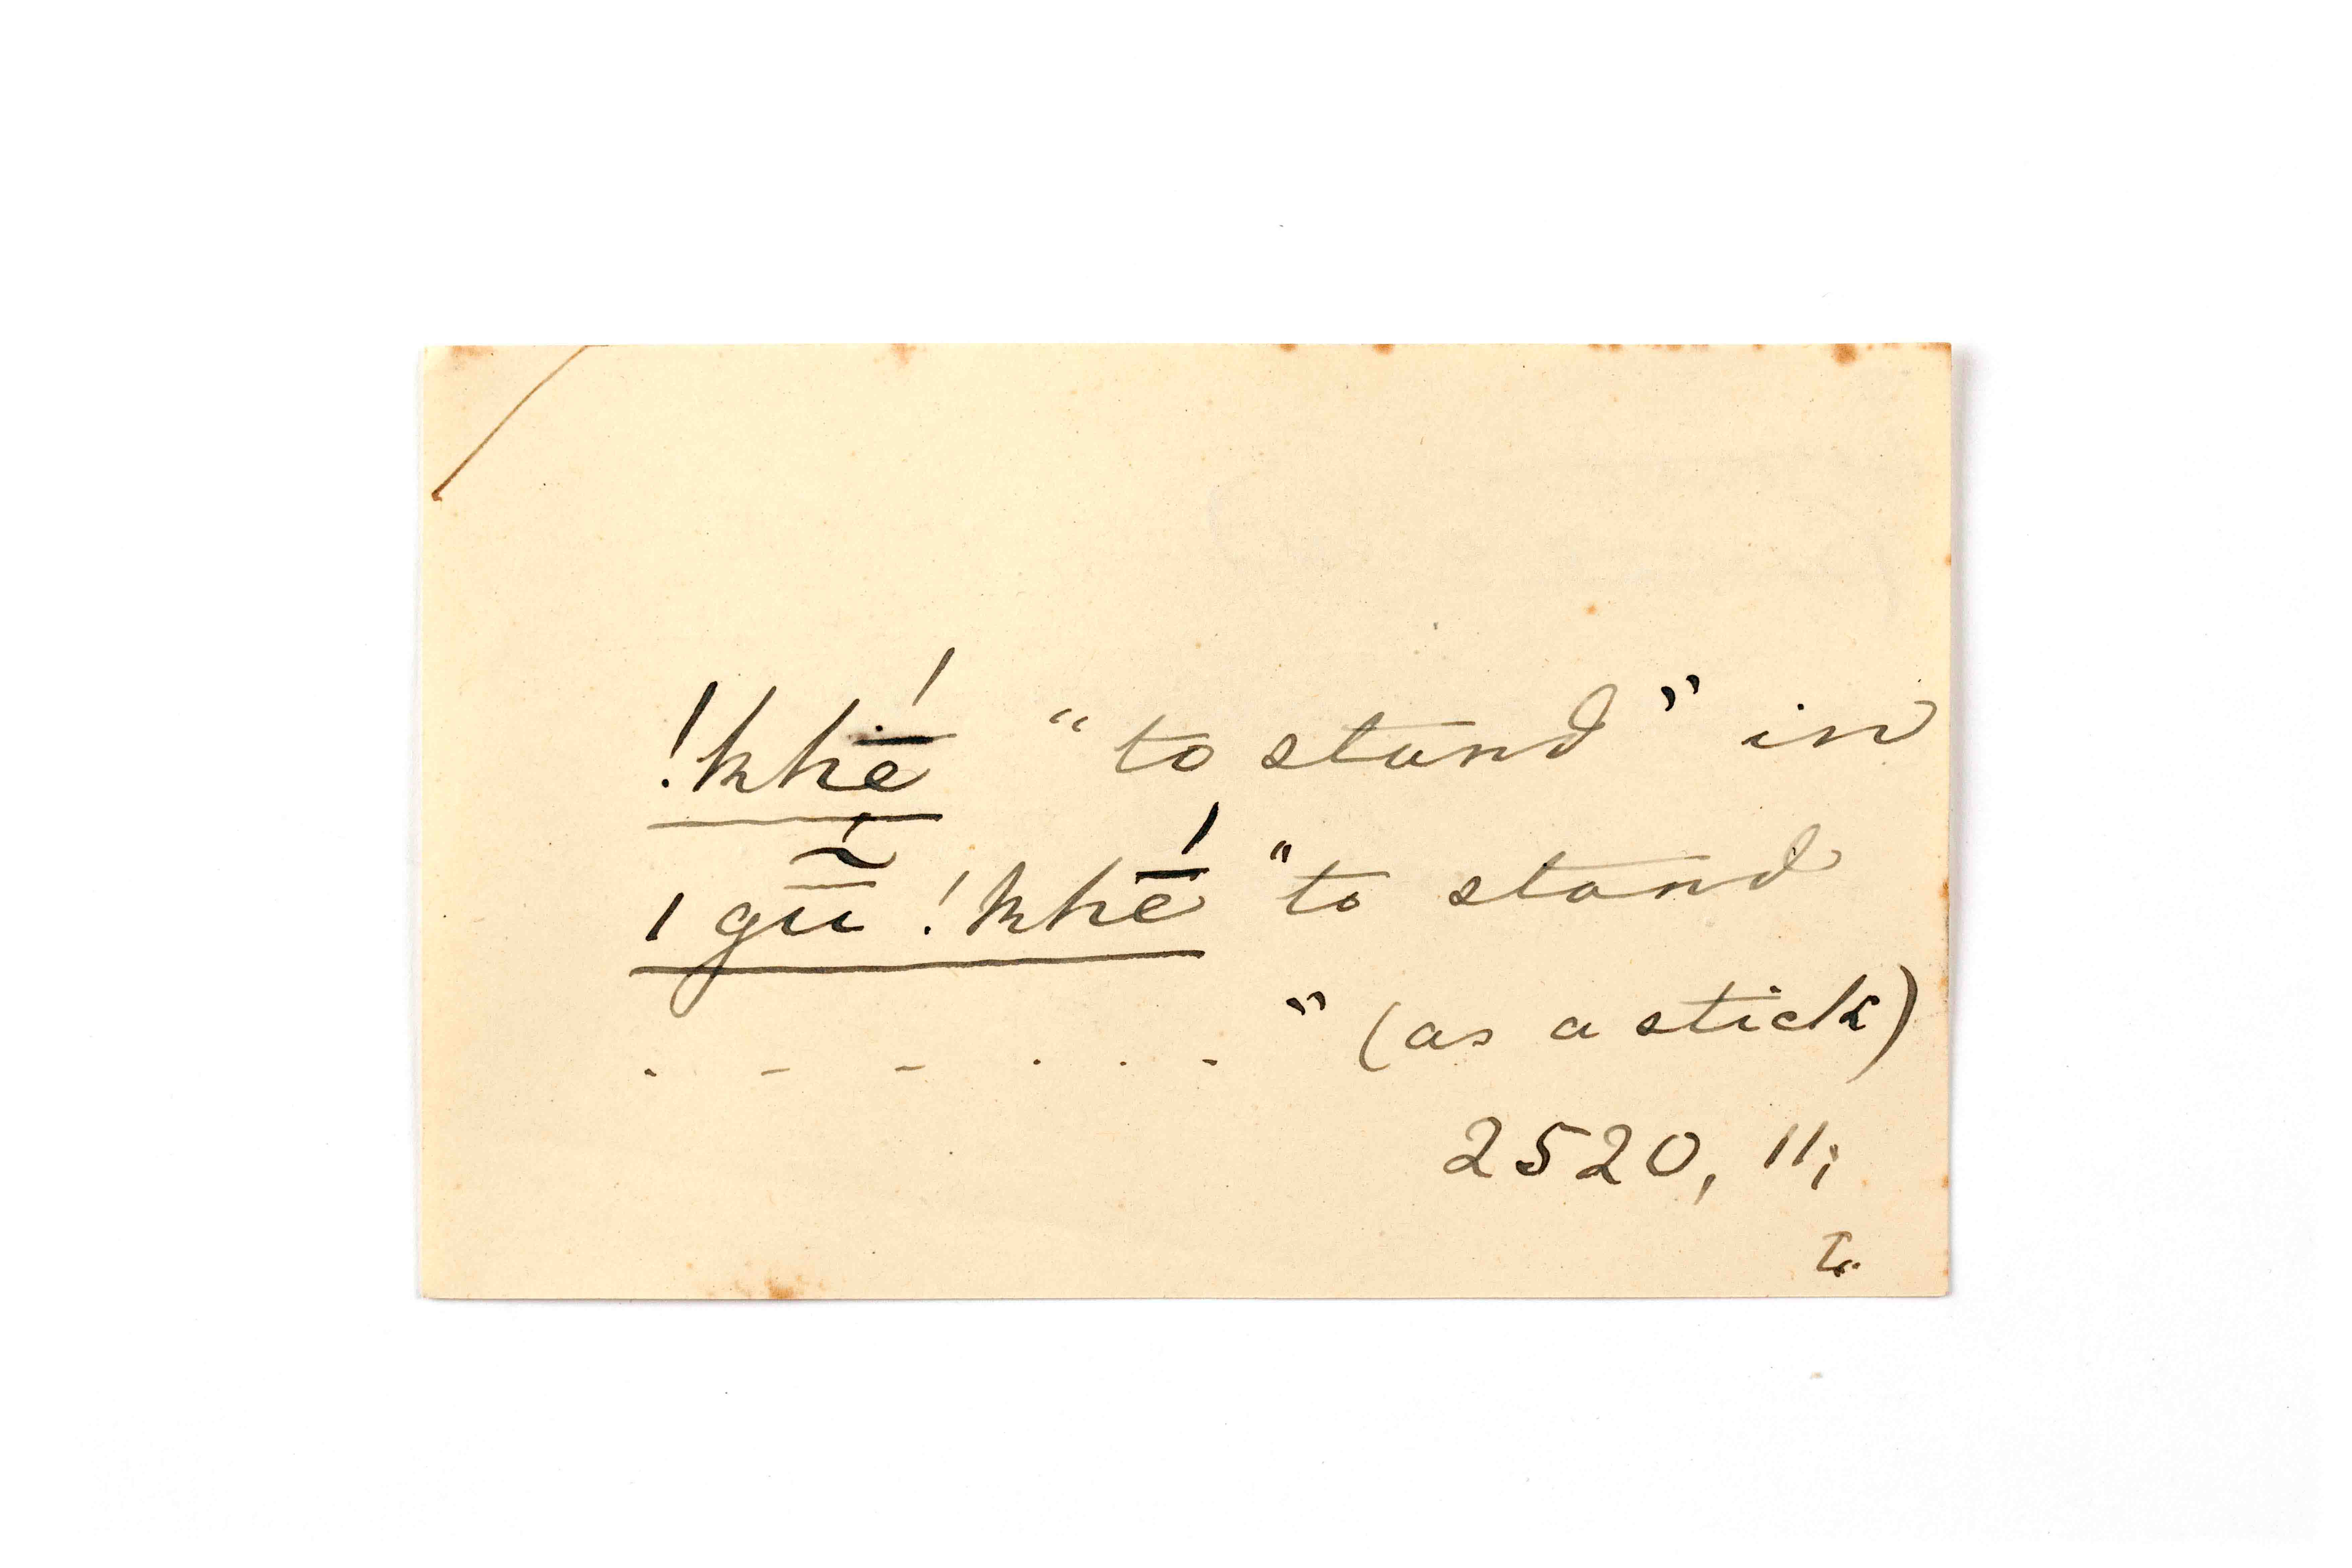 !khḗ “to stand” in
ǀgū̃́ !khḗ “to stand
. - - . . - ” (as a stick)
2520, 11;